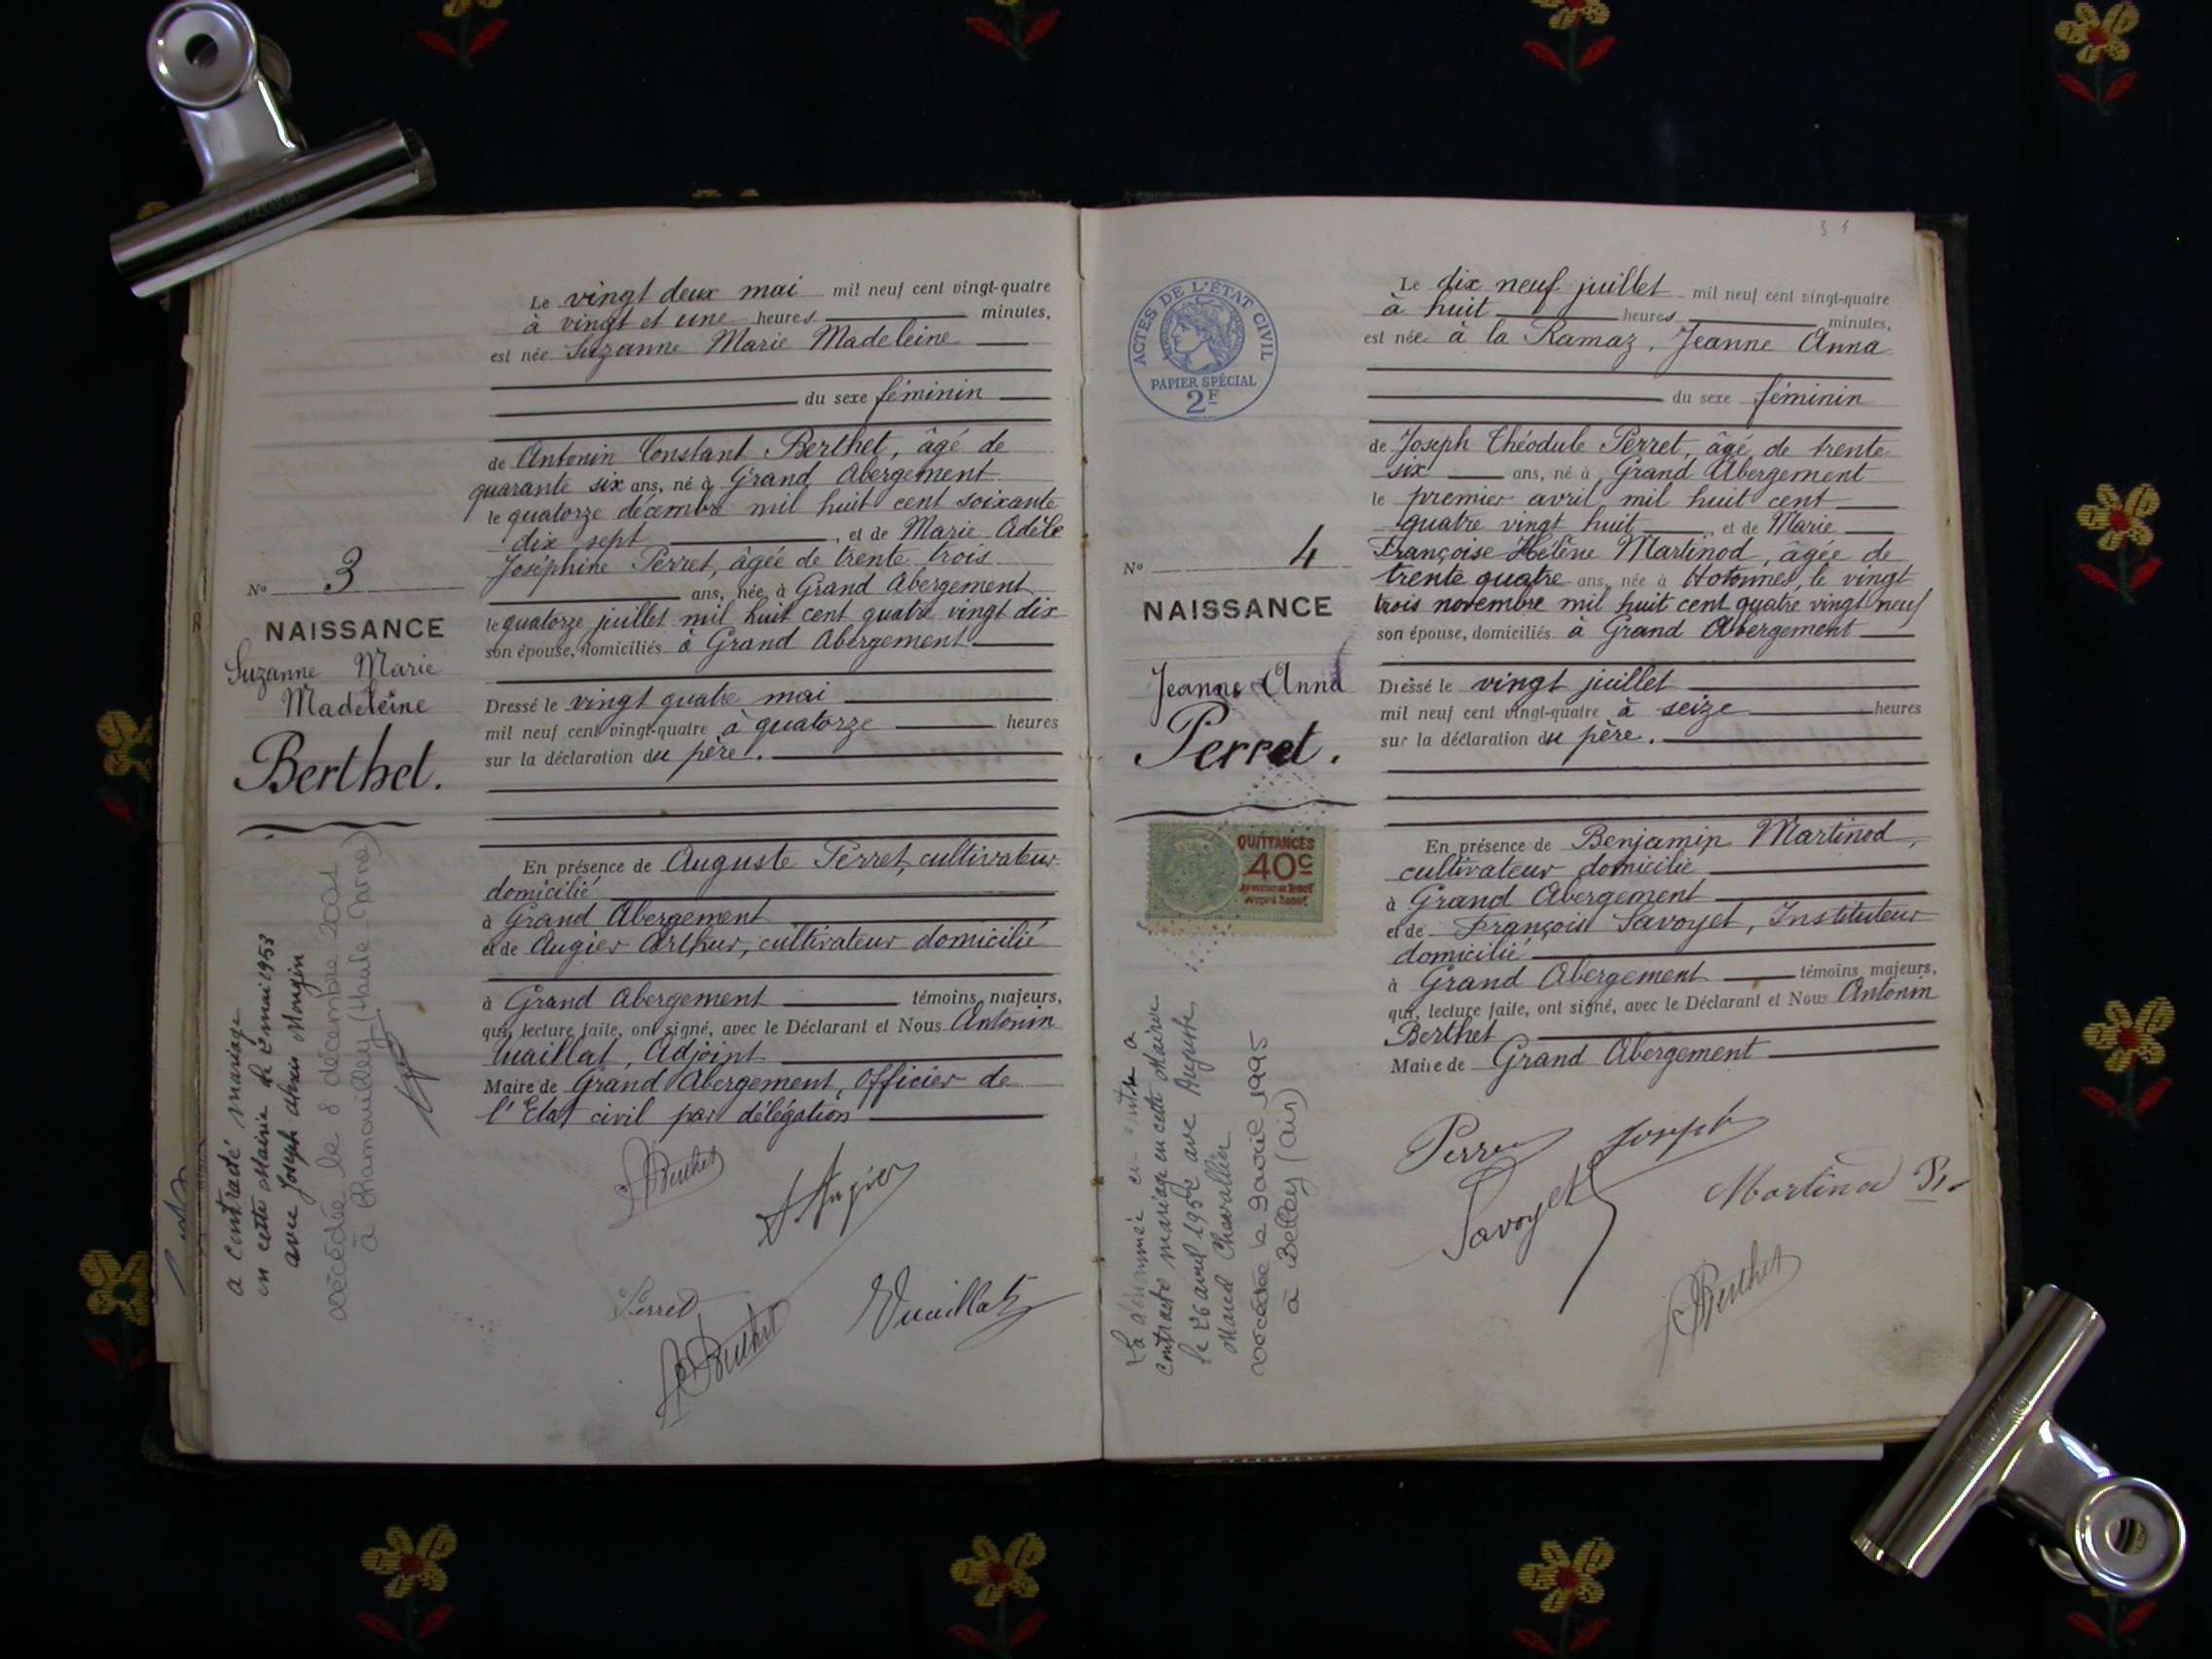 Le vingt deux mai mil neuf cent vingt-quatre
à vingt et une heures minutes,
est née Suzanne Marie Madeleine
du sexe féminin
de Antonin Constant Berthet, âgé de
quarante six ans, né à Grand Abergement
le quatorze décembre mil huit cent soixante
dix sept, et de Marie Adèle
Joséphine Perret, âgée de trente trois
ans, née à Grand Abergement
le quatorze juillet mil huit cent quatre vingt dix
son épouse, domiciliés à Grand Abergement
Dressé le vingt quatre mai
mil neuf cent vingt-quatre à quatorze heures
sur la déclaration du père.
En présence de Auguste Perret, cultivateur
domicilié
à Grand Abergement
et de Augier Arthur, cultivateur domicilié
à Grand Abergement témoins majeurs,
qui, lecture faite, ont signé, avec le Déclarant et Nous Antonin
Vuaillat, Adjoint
Maire de Grand Abergement, Officier de
l'Etat civil par délégation
ABerthet
A Augier
Perret
Vuaillat
ABerthet
No 3
NAISSANCE
Suzanne Marie
Madeleine
Berthet.
a contracté mariage
en cette Mairie le 2 mai 1953
avec Joseph Alexis Mongin
décédée le 8 décembre 2001
à Chamouilley (Haute-Marne)
31
ACTES DE L'ÉTAT CIVIL
PAPIER SPÉCIAL
2F
No 4
NAISSANCE
Jeanne Anna
Perret.
QUITTANCES
40c
La dénommée
contracté mariage en cette Mairie
le 26 avril 1952 avec Auguste
Marcel Chevallier
décédée le 9 avril 1995
à Belley (Ain)
Le dix neuf juillet mil neuf cent vingt-quatre
à huit heures minutes,
est née à la Ramaz, Jeanne Anna
du sexe féminin
de Joseph Théodule Perret, âgé de trente
six ans, né à Grand Abergement
le premier avril mil huit cent
quatre vingt huit, et de Marie
Françoise Hélène Martinod, âgée de
trente quatre ans, née à Hotonnes, le vingt
trois novembre mil huit cent quatre vingt neuf
son épouse, domiciliés à Grand Abergement
Dressé le vingt juillet
mil neuf cent vingt-quatre à seize heures
sur la déclaration du père.
En présence de Benjamin Martinod,
cultivateur domicilié
à Grand Abergement
et de François Savoyet, Instituteur
domicilié
à Grand Abergement témoins majeurs,
qui, lecture faite, ont signé, avec le Déclarant et Nous Antonin
Berthet
Maire de Grand Abergement
Perret Joseph
Savoyet
Martinod
ABerthet